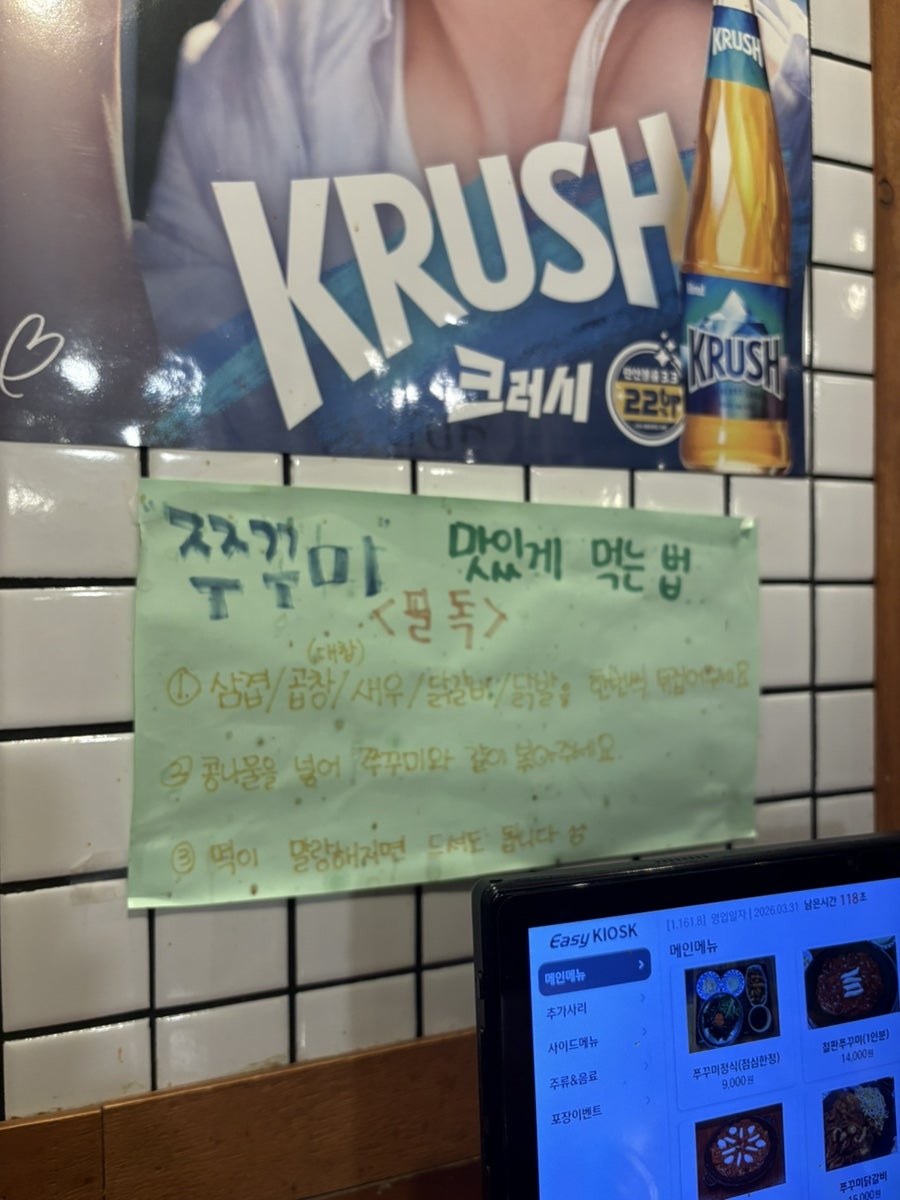 KRUSH
KRUSH
크러시
KRUSH
"쭈꾸미" 맛있게 먹는 법
<필독>
(대창)
① 삼겹/곱창/새우/닭갈비/닭발을 한번씩 뒤집어주세요
② 콩나물을 넣어 쭈꾸미와 같이 볶아주세요
③ 떡이 말랑해지면 드셔도 됩니다
Easy KIOSK
[1.161.8] 영업일자 | 2026.03.31 남은시간 118초
메인메뉴
메인메뉴
추가사리
사이드메뉴
주류&음료
포장이벤트
쭈꾸미정식(점심한정)
9,000원
철판쭈꾸미(1인분)
14,000원
쭈꾸미닭갈비